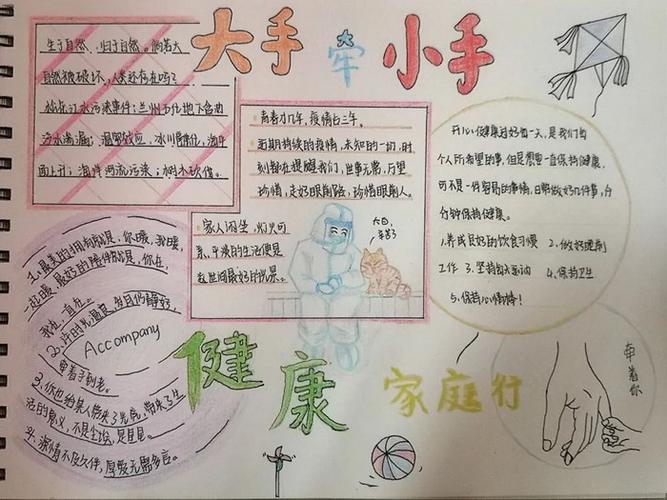 大手牵小手
生于自然,归于自然。倘若大
自然被破坏,人类还存在吗?
松花江水污染事件;兰州石化地下含油
污水渗漏;温室效应,冰川融化,海平
面上升;海洋河流污染;树木砍伐。
青春几年,疫情占三年。
近期持续的疫情,未知的一切,时
刻都在提醒我们,世事无常,万望
珍惜,走好眼前路,珍惜眼前人。
家人闲坐,灯火可
亲,平淡的生活便是
这世间最好的光景。
大白,
辛苦了
开心健康过好每一天,是我们每
个人所希望的事,但是想要一直保持健康,
可不是一件容易的事情,日常做好几件事,分
分钟保持健康。
1.养成良好的饮食习惯 2.做好规划
工作 3.坚持每天运动 4.保持卫
5.保持心情棒!
1.最美的拥有就是,你暖,我暖,
一起暖,最好的陪伴就是,你在,
我在,一直在。
2.许时光温良,并且仍静好,
牵着手到老。
Accompany
3.你也给某人带来了光亮,带来了生
活的意义,不是尘埃,是星星。
4.深情不及久伴,厚爱无需多言。
健康
家庭行
牵着你